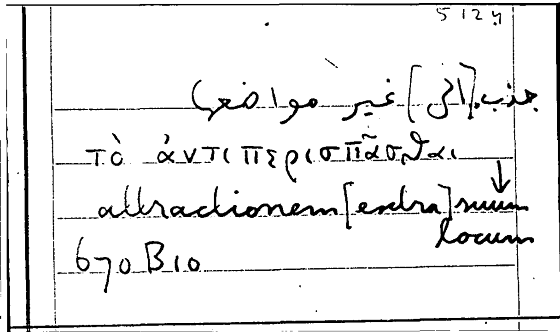 5124
جذب [الى] غير مواضعها
τὸ ἀντιπερισπᾶσθαι
attractionem [extra] suum
locum
670 B 10